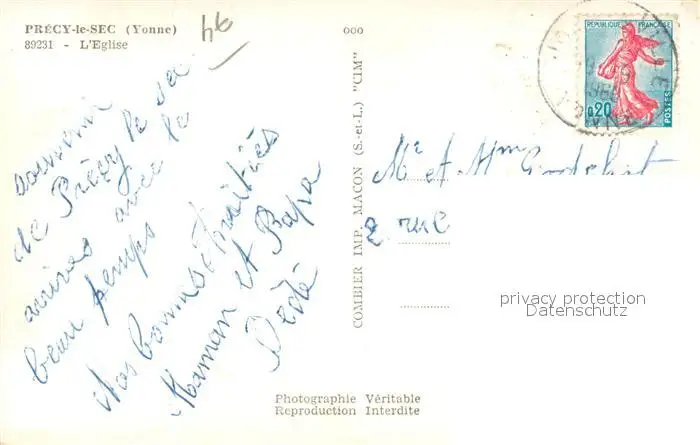 PRÉCY-le-SEC (Yonne)
89231 - L'Eglise
souvenir
de Précy le sec
arrivés avec le
beau temps
Nos bonnes Amitiés
Maman et Papa
Dédé
ooo
COMBIER IMP. MACON (S.-et-L.) "CIM"
REPUBLIQUE FRANÇAISE
0,20
POSTES
Mr et Mme
2 rue
privacy protection
Datenschutz
Photographie Véritable
Reproduction Interdite